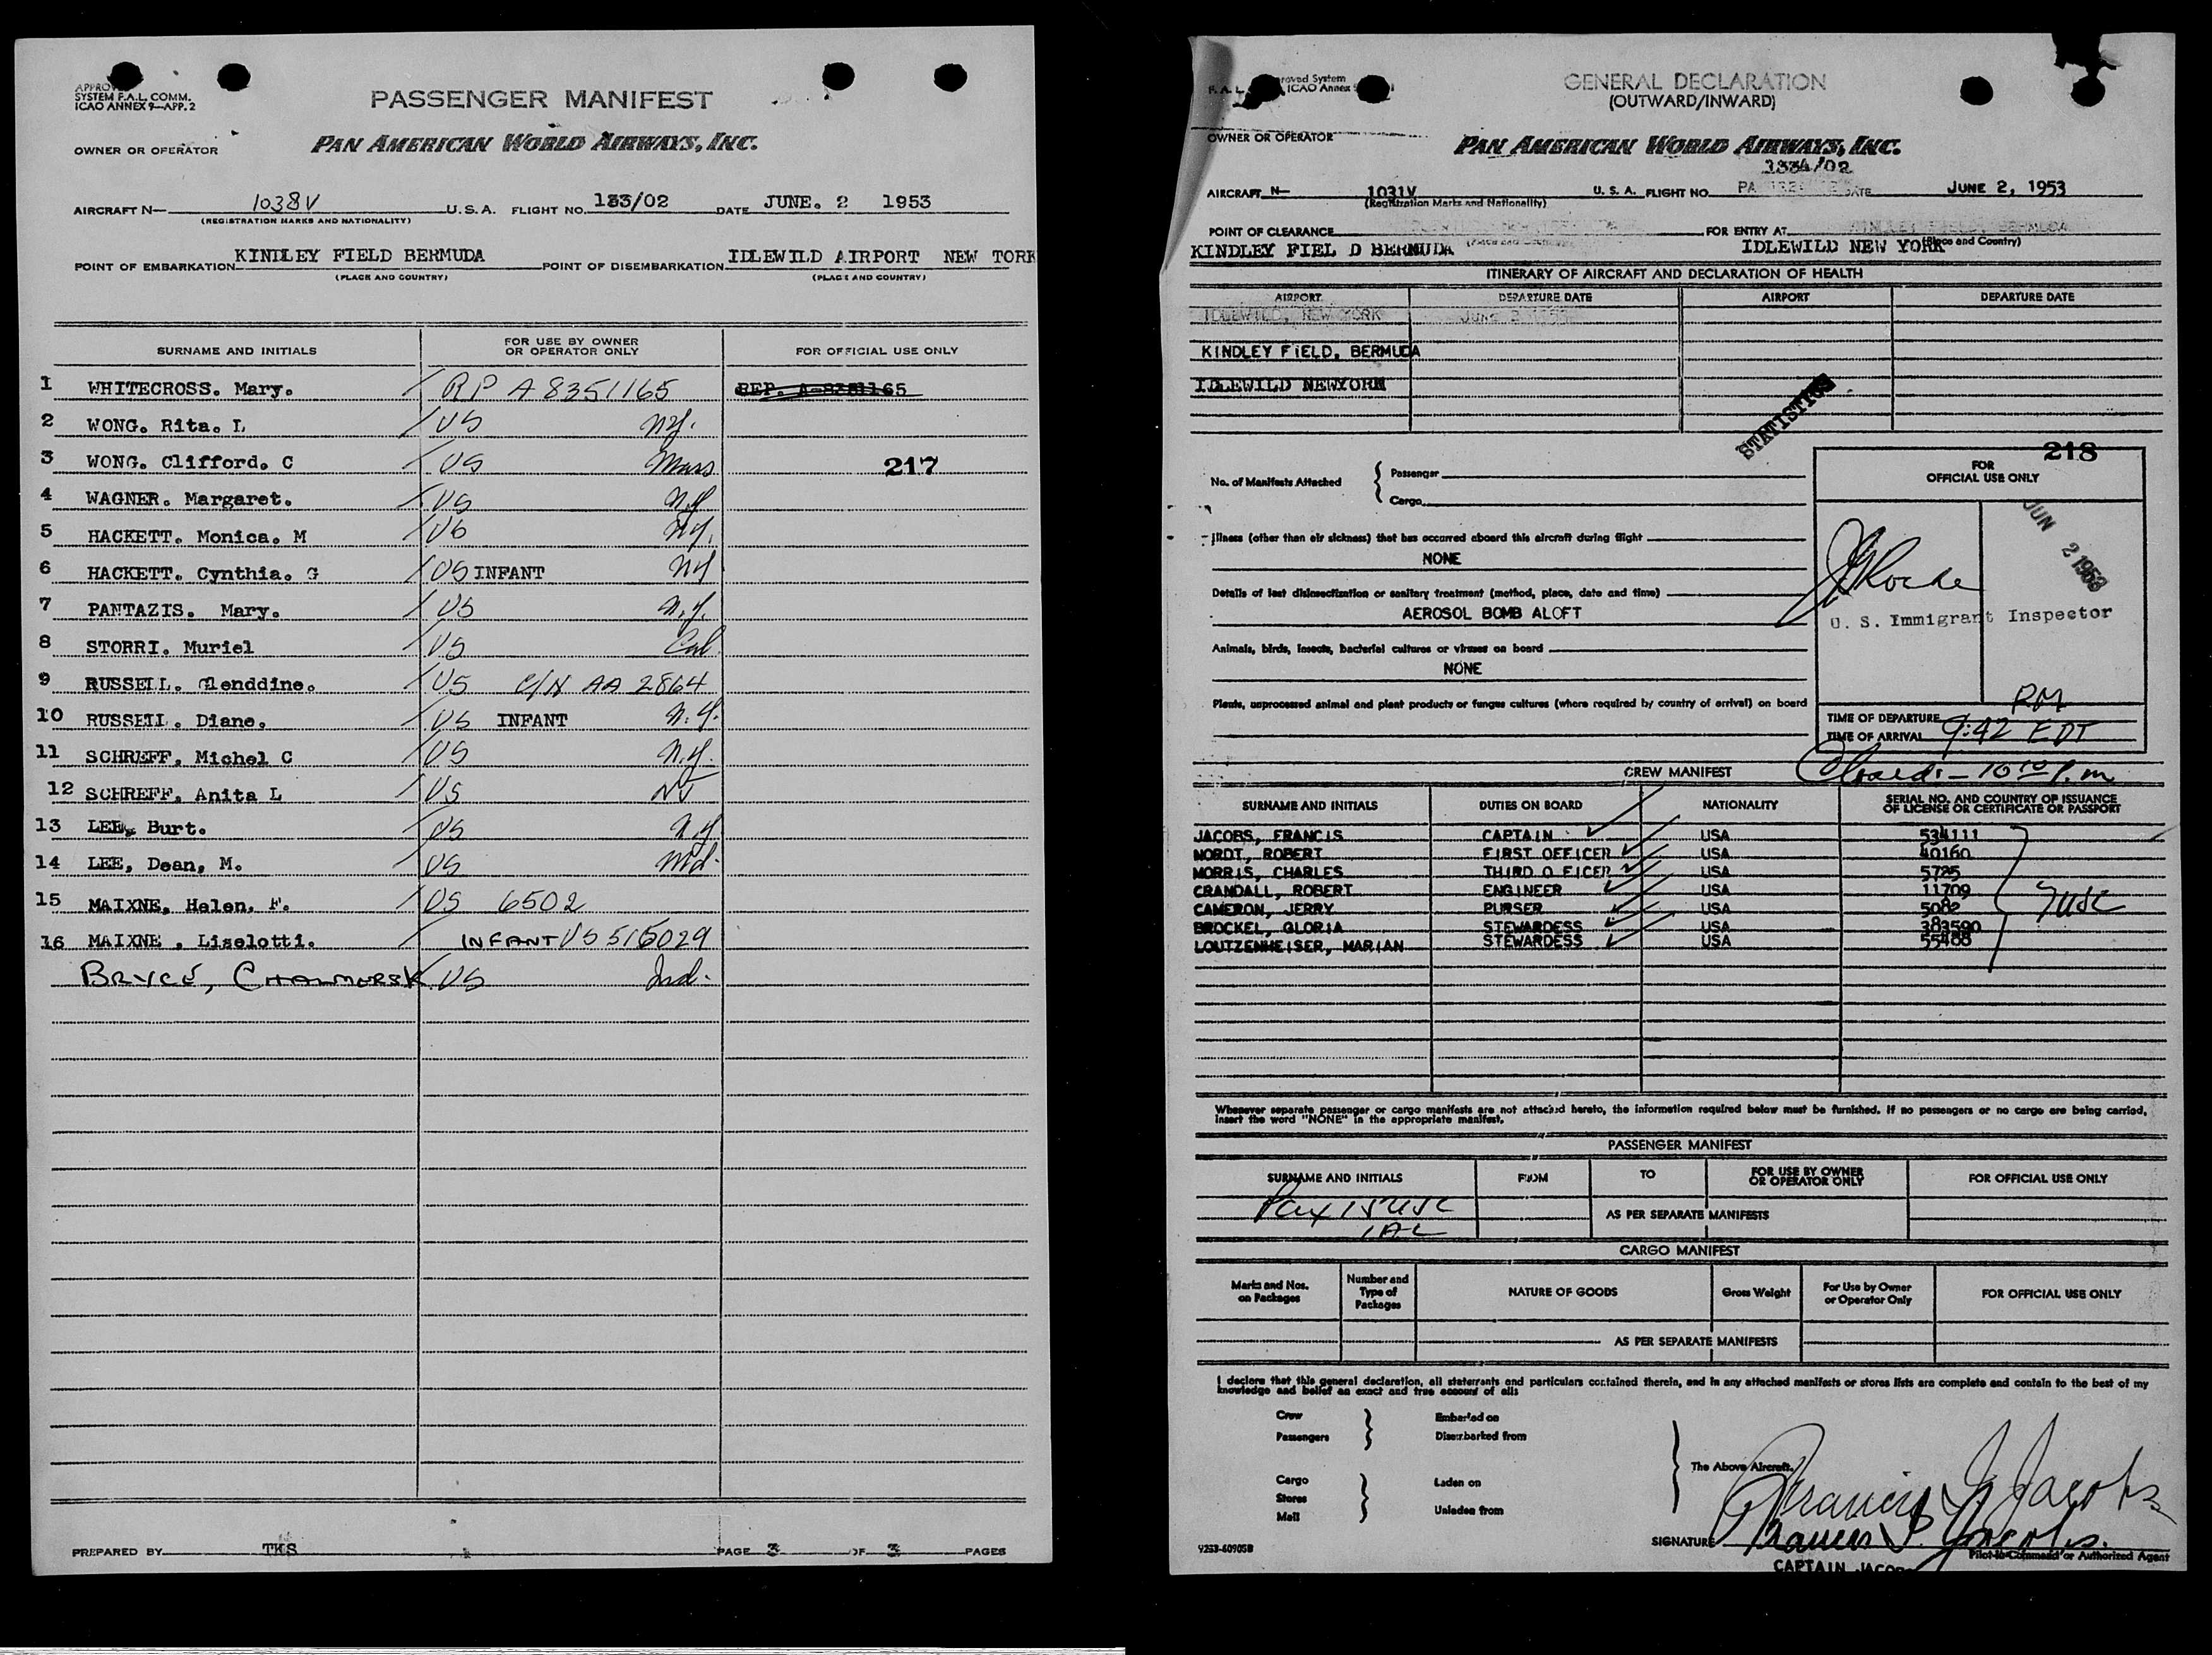 SYSTEM F.A.L. COMM.
ICAO ANNEX 9—APP. 2
PASSENGER MANIFEST
OWNER OR OPERATOR
PAN AMERICAN WORLD AIRWAYS, INC.
AIRCRAFT N— 1038V U.S.A. FLIGHT NO. 133/02 DATE JUNE. 2 1953
(REGISTRATION MARKS AND NATIONALITY)
POINT OF EMBARKATION KINDLEY FIELD BERMUDA POINT OF DISEMBARKATION IDLEWILD AIRPORT NEW YORK
(PLACE AND COUNTRY) (PLACE AND COUNTRY)
SURNAME AND INITIALS FOR USE BY OWNER OR OPERATOR ONLY FOR OFFICIAL USE ONLY
1 WHITECROSS. Mary. RP A8351165 REP. A-8351165
2 WONG. Rita. L US NY.
3 WONG. Clifford. C US Mass 217
4 WAGNER. Margaret. US N.Y
5 HACKETT. Monica. M US NY.
6 HACKETT. Cynthia. G US INFANT NY
7 PANTAZIS. Mary. US N.Y.
8 STORRI. Muriel US Cal
9 RUSSELL. Glenddine. US C/N AA 2864
10 RUSSELL. Diane. US INFANT N.Y.
11 SCHREFF, Michel C US N.Y.
12 SCHREFF, Anita L US NJ
13 LEE, Burt. US N.Y
14 LEE, Dean, M. US Md.
15 MAIXNE, Helen. F. US 6502
16 MAIXNE , Liselotti. INFANT US 515029
BRYCE, CHALMERS K US Ind.
PREPARED BY TKS PAGE 3 OF 3 PAGES
F.A.L. roved System
ICAO Annex 9
GENERAL DECLARATION
(OUTWARD/INWARD)
OWNER OR OPERATOR
PAN AMERICAN WORLD AIRWAYS, INC.
133A/02
AIRCRAFT N— 1031V U. S. A. FLIGHT NO. PA DATE JUNE 2, 1953
(Registration Marks and Nationality)
POINT OF CLEARANCE FOR ENTRY AT KINDLEY FIELD, BERMUDA
KINDLEY FIEL D BERMUDA (Place and Country) IDLEWILD NEW YORK (Place and Country)
ITINERARY OF AIRCRAFT AND DECLARATION OF HEALTH
AIRPORT DEPARTURE DATE AIRPORT DEPARTURE DATE
IDLEWILD, NEW YORK JUNE 2 1953
KINDLEY FIELD, BERMUDA
IDLEWILD NEWYORK
STATISTICS
218
FOR
OFFICIAL USE ONLY
No. of Manifests Attached { Passenger
Cargo
JUN 2 1953
Illness (other than air sickness) that has occurred aboard this aircraft during flight
NONE
Details of last disinsectization or sanitary treatment (method, place, date and time)
AEROSOL BOMB ALOFT
U. S. Immigrant Inspector
Animals, birds, insects, bacterial cultures or viruses on board
NONE
Plants, unprocessed animal and plant products or fungus cultures (where required by country of arrival) on board
PM
TIME OF DEPARTURE
TIME OF ARRIVAL 9:42 EDT
CREW MANIFEST
SURNAME AND INITIALS DUTIES ON BOARD NATIONALITY SERIAL NO. AND COUNTRY OF ISSUANCE OF LICENSE OR CERTIFICATE OR PASSPORT
JACOBS, FRANCIS CAPTAIN USA 534111
NORDT, ROBERT FIRST OFFICER USA 40160
MORRIS, CHARLES THIRD O FICER USA 5725
CRANDALL, ROBERT ENGINEER USA 11709
CAMERON, JERRY PURSER USA 5082
BROCKEL, GLORIA STEWARDESS USA 383590
LOUTZENHEISER, MARIAN STEWARDESS USA 55488
7USC
Whenever separate passenger or cargo manifests are not attached hereto, the information required below must be furnished. If no passengers or no cargo are being carried,
insert the word "NONE" in the appropriate manifest.
PASSENGER MANIFEST
SURNAME AND INITIALS FROM TO FOR USE BY OWNER OR OPERATOR ONLY FOR OFFICIAL USE ONLY
Pax 15 USC
AS PER SEPARATE MANIFESTS
CARGO MANIFEST
Marks and Nos. on Packages Number and Type of Packages NATURE OF GOODS Gross Weight For Use by Owner or Operator Only FOR OFFICIAL USE ONLY
AS PER SEPARATE MANIFESTS
I declare that this general declaration, all statements and particulars contained therein, and in any attached manifests or stores lists are complete and contain to the best of my
knowledge and belief an exact and true account of all:
Crew Embarked on
Passengers Disembarked from
The Above Aircraft.
Cargo Laden on
Stores
Mail Unladen from
Francis J Jacobs
SIGNATURE Francis J. Jacobs.
Pilot-in-Command or Authorized Agent
9233-60905B
CAPTAIN JACOBS